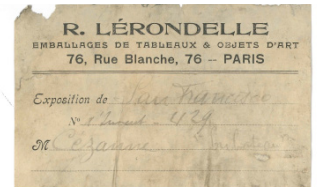 R. LÉRONDELLE
EMBALLAGES DE TABLEAUX & OBJETS D'ART
76, Rue Blanche, 76 — PARIS
Exposition de San Francisco
Nº 429
M Cézanne